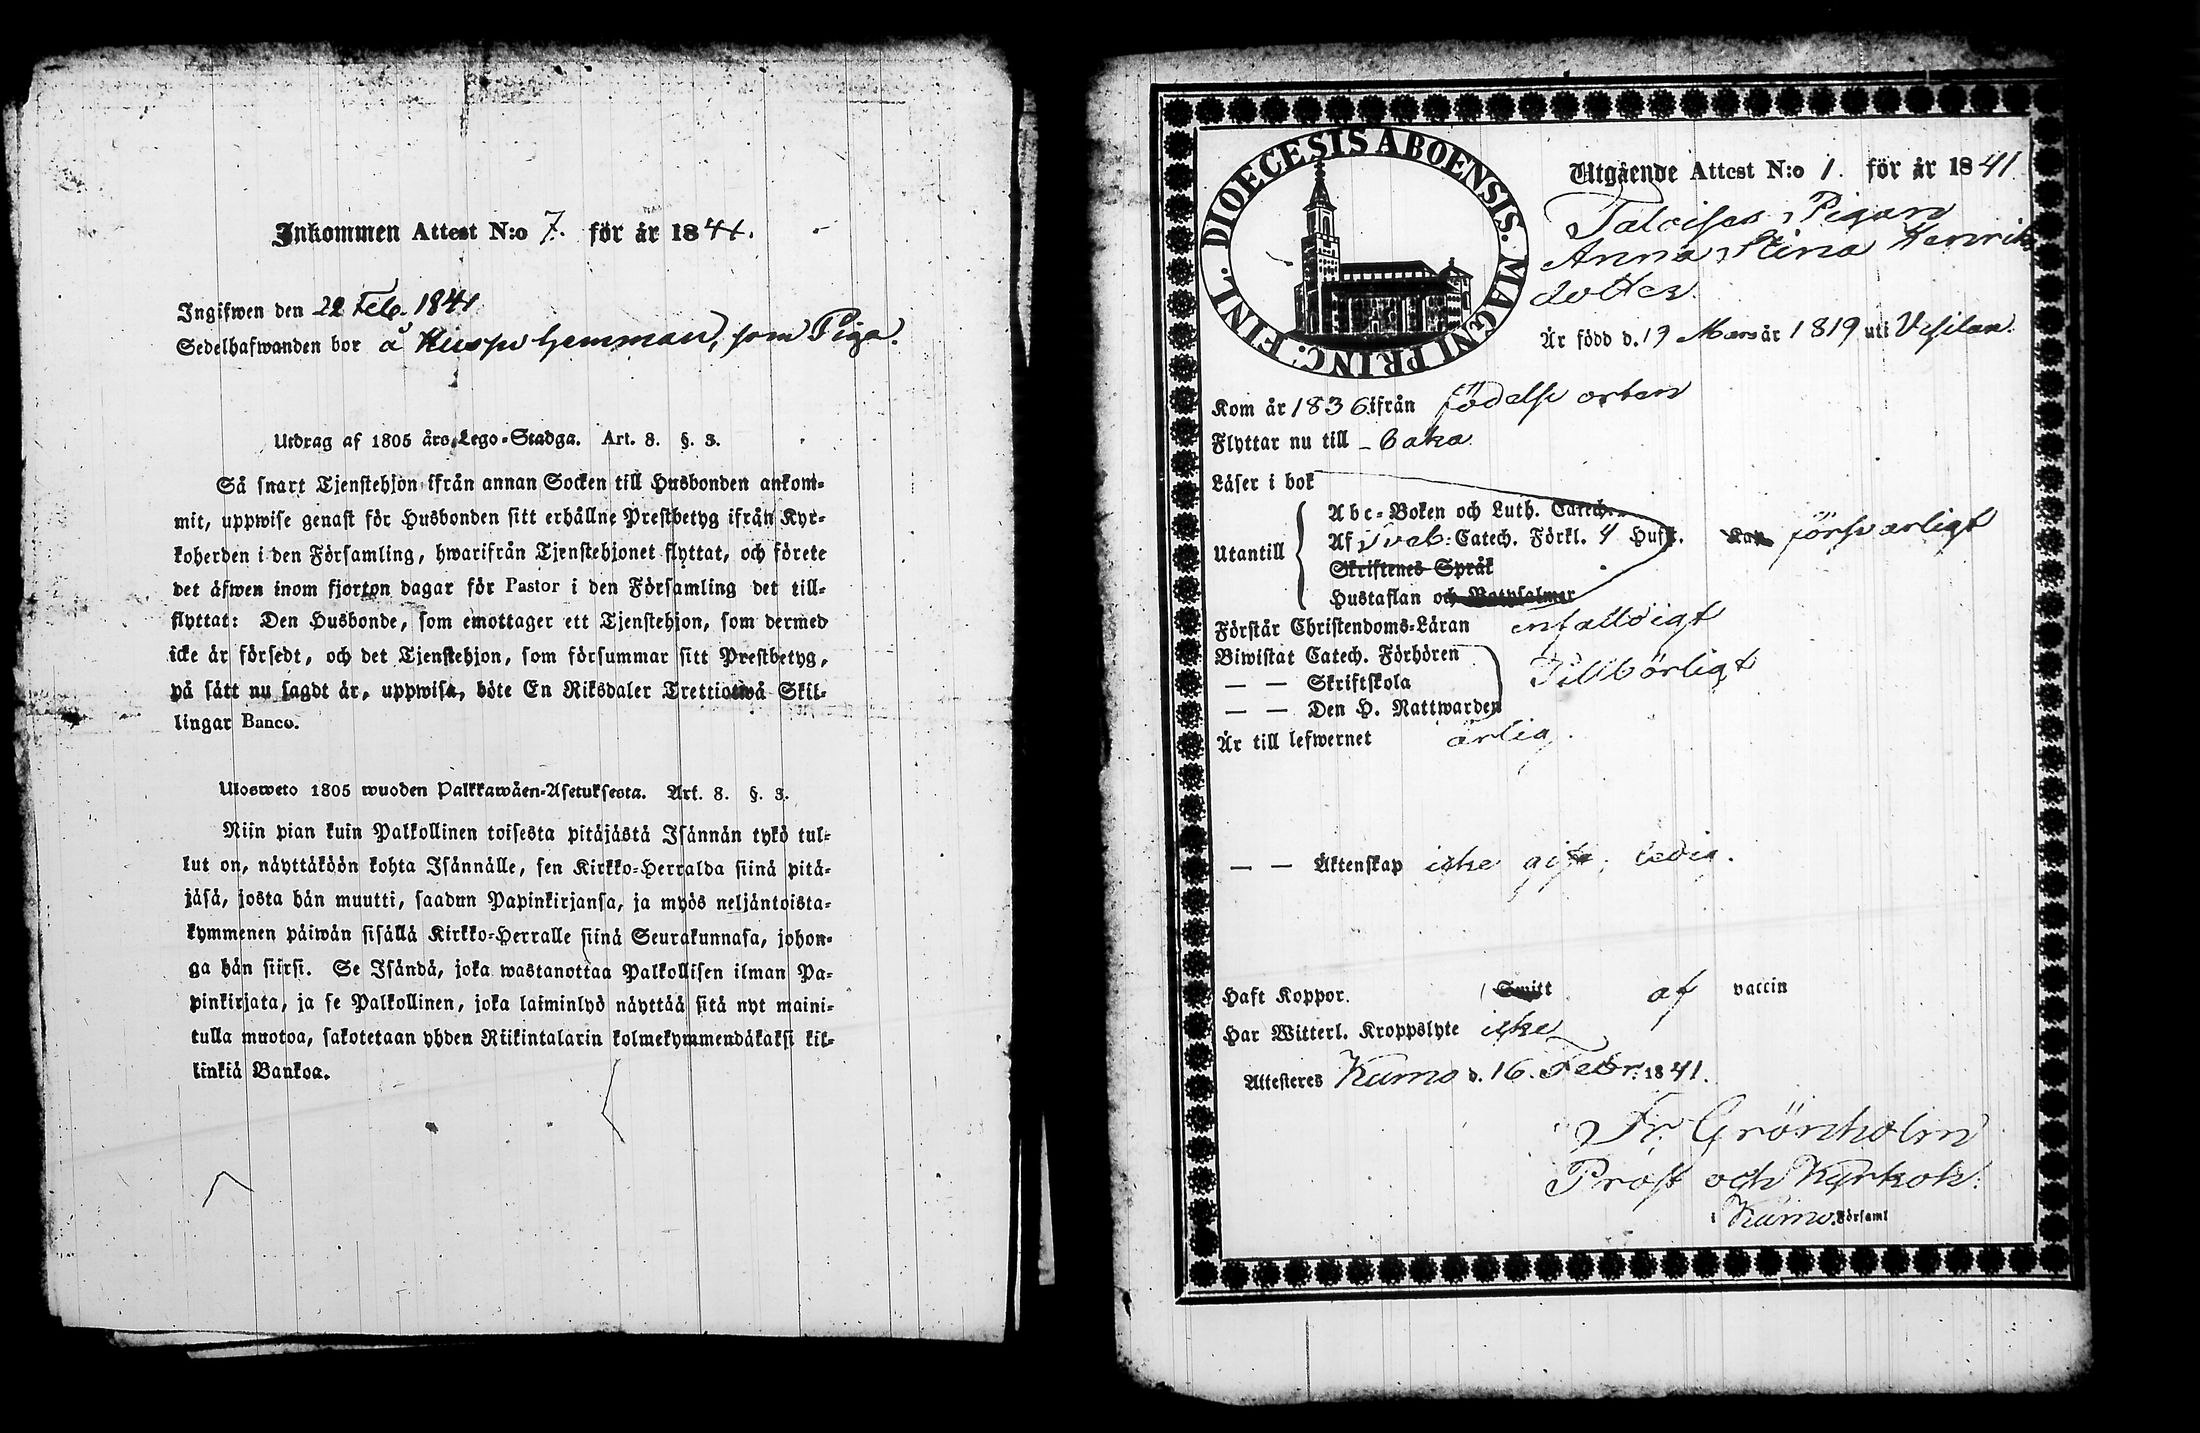 Inkommen Attest N:o 7. för år 1841.
Ingifwen den 22 Feb. 1841
Sedelhafwanden bor å hemman, som Piga.
Utdrag af 1805 års Lego-Stadga. Art. 8. §. 3.
Så snart Tjenstehjon ifrån annan Socken till Husbonden ankom-
mit, uppwise genast för Husbonden sitt erhållne Prestbetyg ifrån Kyr-
koherden i den Församling, hwarifrån Tjenstehjonet flyttat, och förete
det äfwen inom fjorton dagar för Pastor i den Församling det till-
flyttat: Den Husbonde, som emottager ett Tjenstehjon, som dermed
icke är försedt, och det Tjenstehjon, som försummar sitt Prestbetyg,
på sätt nu sagdt är, uppwisa, böte En Riksdaler Trettiotwå Skil-
lingar Banco.
Ulosweto 1805 wuoden Palkkawäen-Asetuksesta. Art. 8. §. 3.
Niin pian kuin Palkollinen toisesta pitäjästä Isännän tykö tul-
lut on, näyttäköön kohta Isännälle, sen Kirkko-Herralda siinä pitä-
jäsä, josta hän muutti, saadun Papinkirjansa, ja myös neljäntoista-
kymmenen päiwän sisällä Kirkko-Herralle siinä Seurakunnasa, johon-
ga hän siirsi. Se Isändä, joka wastanottaa Palkollisen ilman Pa-
pinkirjata, ja se Palkollinen, joka laiminlyö näyttää sitä nyt maini-
tulla muotoa, sakotetaan yhden Riikintalarin kolmekymmendäkaksi kil-
linkiä Bankoa.
DIOECESIS ABOENSIS. MAGNI PRINC: FINL.
Utgående Attest N:o 1. för år 1841
Pigan
Anna Stina Henriks
dotter.
Är född d. 19 Mars år 1819 uti Ufsilan.
Kom år 1836 ifrån födelse orten
Flyttar nu till -baka
Läser i bok
Abc-Boken och Luth. Catech.
Utantill Af Sveb: Catech. Förkl. 4 Huft. Kan försvarligt
Skriftenes Språk
Hustaflan och Botpsalmer
Förstår Christendoms-Läran enfalldigt
Biwistat Catech. Förhören
— — Skriftskola Tillbörligt
— — Den H. Nattwarden
Är till lefwernet ärlig.
— — Äktenskap icke gift, ledig.
Haft Koppor. Smitt af vaccin
Har Witterl. Kroppslyte icke
Attesteres Kumo d. 16. Febr. 1841.
Fr. Grönholm
Prost och Kyrkoh:
i Kumo Församl